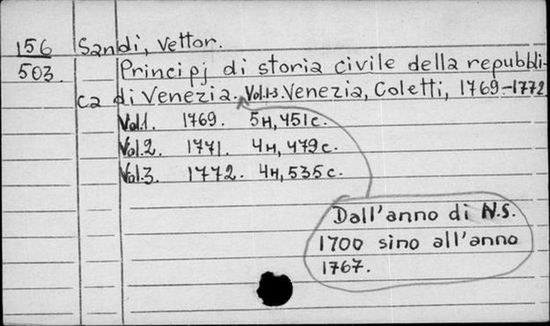 156 Sandi, Vettor.
503. Principj di storia civile della repubbli-
ca di Venezia. Vol.1-3. Venezia, Coletti, 1769-1772
Vol.1. 1769. 5н, 451с.
Vol.2. 1771. 4н, 479с.
Vol.3. 1772. 4н, 535с.
Dall'anno di N.S.
1700 sino all'anno
1767.